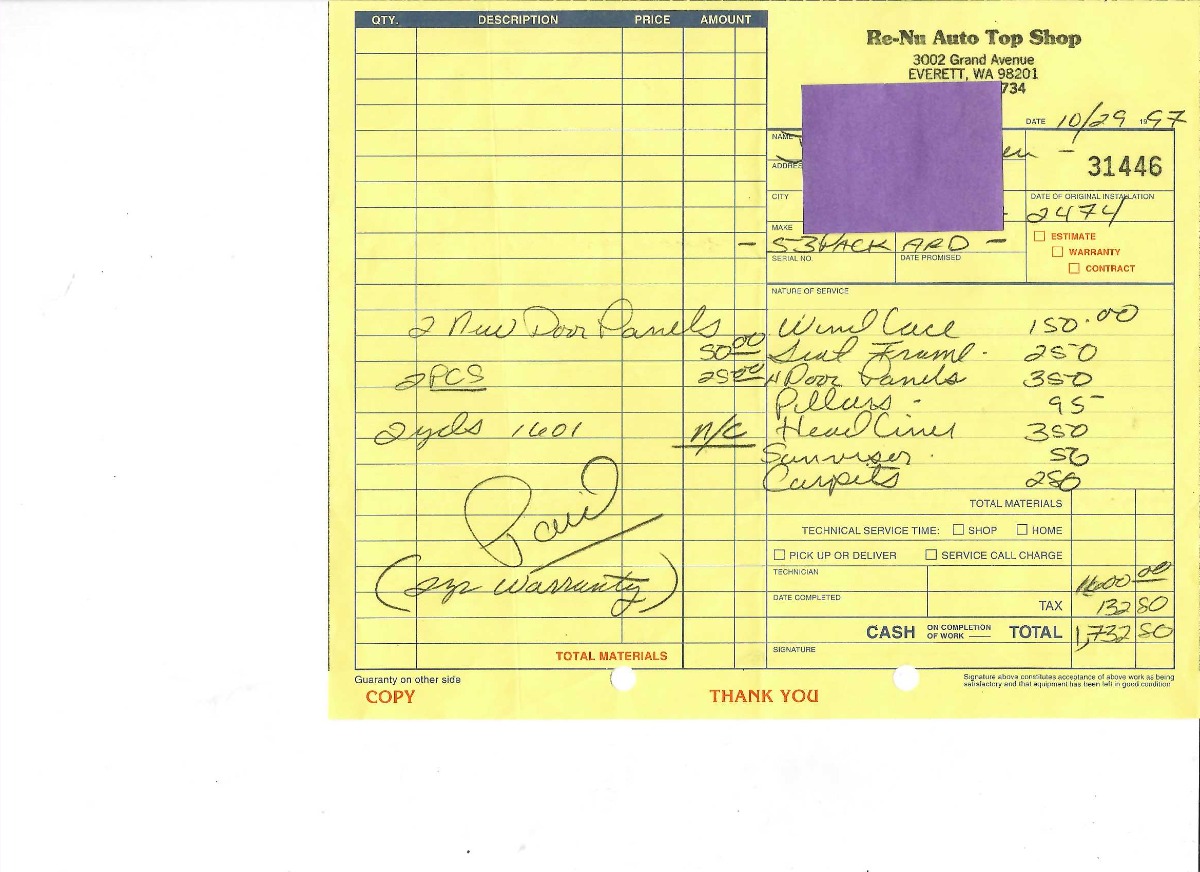 QTY. DESCRIPTION PRICE AMOUNT
Re-Nu Auto Top Shop
3002 Grand Avenue
EVERETT, WA 98201
734
DATE 10/29 1997
NAME
en -
31446
ADDRE
CITY
DATE OF ORIGINAL INSTALLATION
2474
MAKE
- 53 PACKARD -
ESTIMATE
WARRANTY
CONTRACT
SERIAL NO. DATE PROMISED
NATURE OF SERVICE
2 New Door Panels
50 00
2 PCS 25 00
2 yds 1601 N/C
Paid
(2 yr Warranty)
TOTAL MATERIALS
Wind Lace 150.00
Seat Frame. 250
4 Door Panels 350
Pillars - 95-
Head Liner 350
Sunviser. 50
Carpets 250
TOTAL MATERIALS
TECHNICAL SERVICE TIME: SHOP HOME
PICK UP OR DELIVER SERVICE CALL CHARGE
TECHNICIAN
1600 00
DATE COMPLETED
TAX 132 80
CASH ON COMPLETION OF WORK TOTAL 1,732 80
SIGNATURE
Guaranty on other side
COPY
THANK YOU
Signature above constitutes acceptance of above work as being
satisfactory and that equipment has been left in good condition